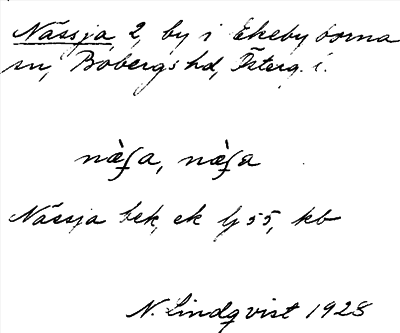 Nässja 2, by i Ekebyborna
sn, Bobergs hd, Österg. l.
næ̀ʃa, næ̀ʃa
Nässja bek, ek lj 55, kb
N. Lindqvist 1928